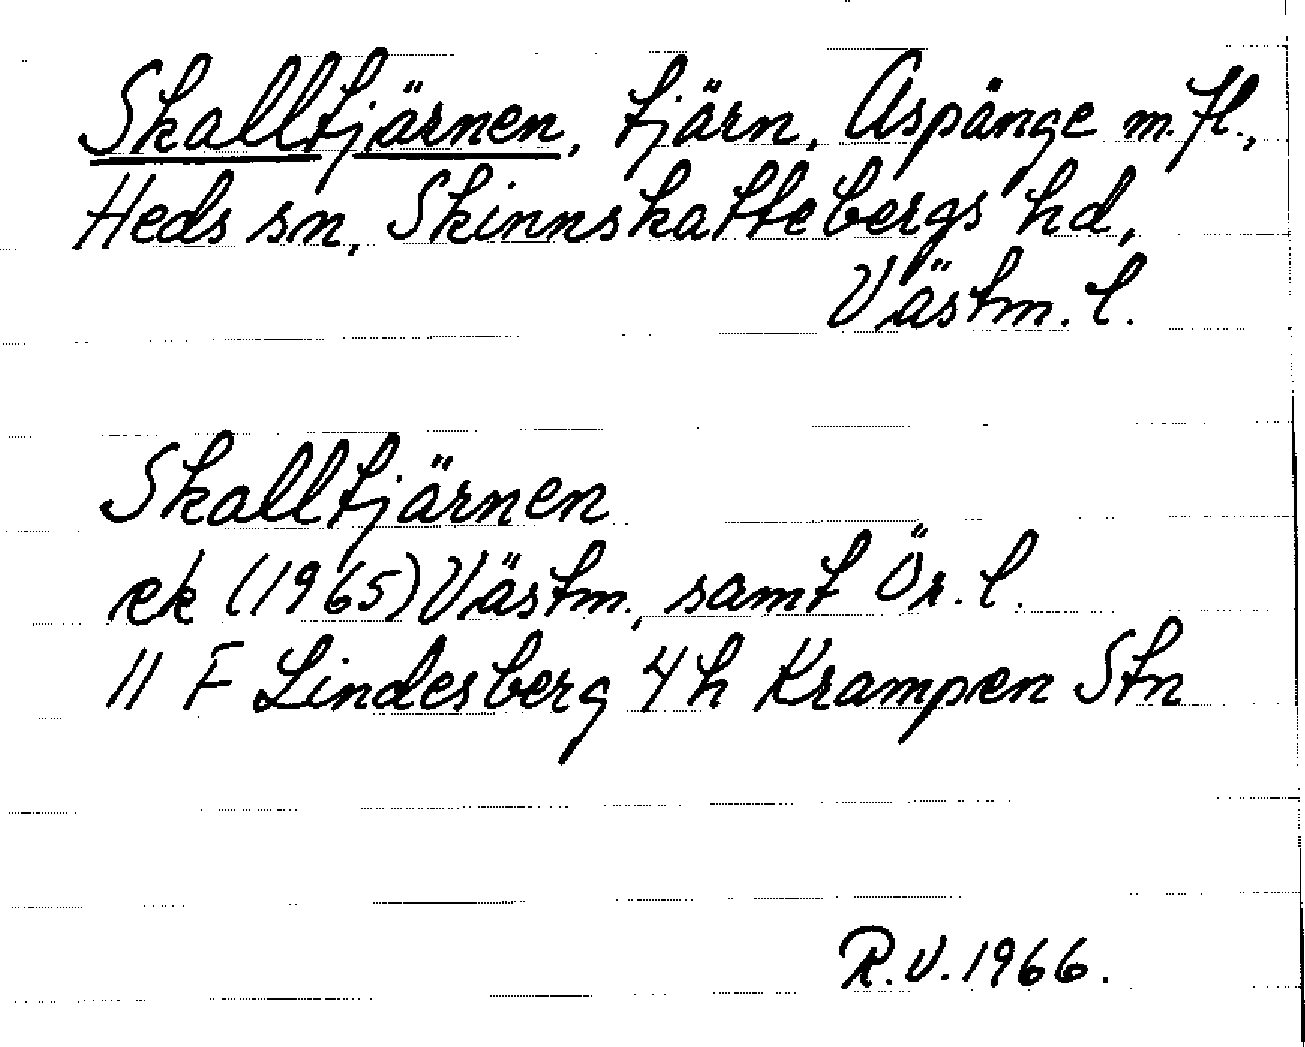 Skalltjärnen, tjärn, Aspänge m.fl.,
Heds sn, Skinnskattebergs hd,
Västm. l.
Skalltjärnen
ek (1965) Västm., samt Ör. l.
11 F Lindesberg 4 h Krampen Stn
R.V. 1966.